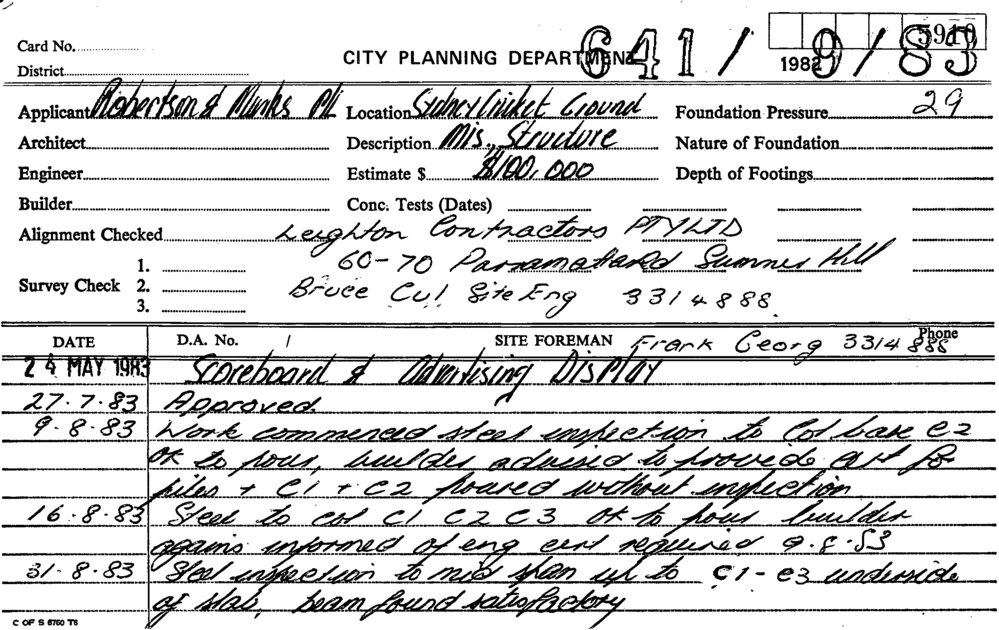 5910
Card No.
CITY PLANNING DEPARTMENT 641/9/83
District 1982
Applicant Robertson & Minks P/L Location Sidney Cricket Ground Foundation Pressure 29
Architect Description Mis. Structure Nature of Foundation
Engineer Estimate $ $100,000 Depth of Footings
Builder Conc. Tests (Dates)
Alignment Checked Leighton Contractors PTY LTD
1. 60-70 Parramatta Rd Summer Hill
Survey Check 2. Bruce Cul Site Eng 3314888
3.
DATE D.A. No. / SITE FOREMAN Frank Georg 3314888 Phone
24 MAY 1983 Scoreboard & Advertising Display
27.7.83 Approved.
9.8.83 Work commenced steel inspection to Col base C2
OK to pour, builder advised to provide cert for
piles + C1 + C2 poured without inspection
16.8.83 Steel to col C1 C2 C3 OK to pour builder
agains informed of eng cert required 9.8.83
31.8.83 Steel inspection to mid span up to C1-C3 underside
of slab, beam found satisfactory
C OF S 6760 T6